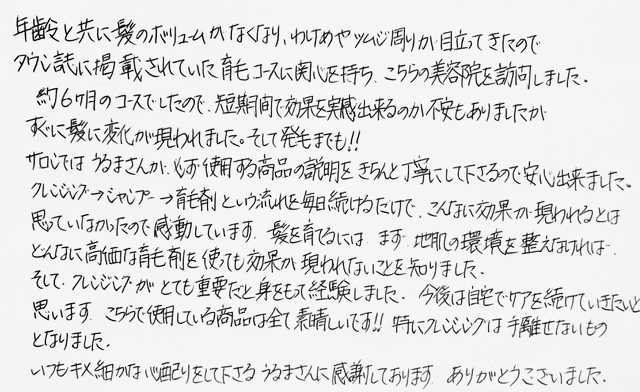 年齢と共に髪のボリュームがなくなり、わけめやツムジ周りが目立ってきたので
タウン誌に掲載されていた育毛コースに関心を持ち、こちらの美容院を訪問しました。
約6ヶ月のコースでしたので、短期間で効果を実感出来るのか不安もありましたが
すぐに髪に変化が現われました。そして発毛までも!!
サロンではうるまさんが、必ず使用する商品の説明をきちんと丁寧にして下さるので安心出来ました。
クレンジング→シャンプー→育毛剤という流れを毎日続けるだけで、こんなに効果が現われるとは
思っていなかったので感動しています。髪を育てるには、まず、地肌の環境を整えなければ、
どんなに高価な育毛剤を使っても効果が現われないことを知りました。
そして、クレンジングがとても重要だと身をもって経験しました。今後は自宅でケアを続けていきたいと
思います。こちらで使用している商品は全て素晴しいです!!特にクレンジングは手離せないもの
となりました。
いつもキメ細かな心配りをして下さるうるまさんに感謝しております。ありがとうございました。